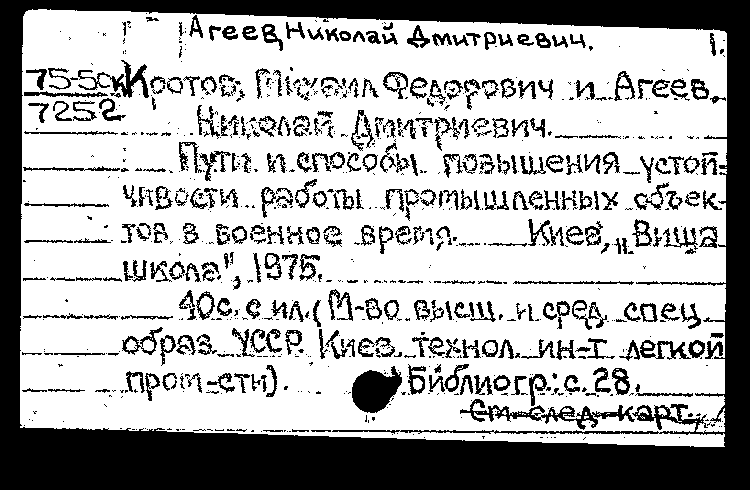 Агеев, Николай Дмитриевич. 1.
75-50к Кротов, Михаил Федорович и Агеев,
7252 Николай Дмитриевич.
Пути и способы повышения устой-
чивости работы промышленных объек-
тов в военное время. Киев, „Вища
школа", 1975.
40с. с ил. (М-во высш. и сред. спец.
образ. УССР. Киев. технол. ин-т легкой
пром-сти). Библиогр.: с. 28.
См. след. карт.